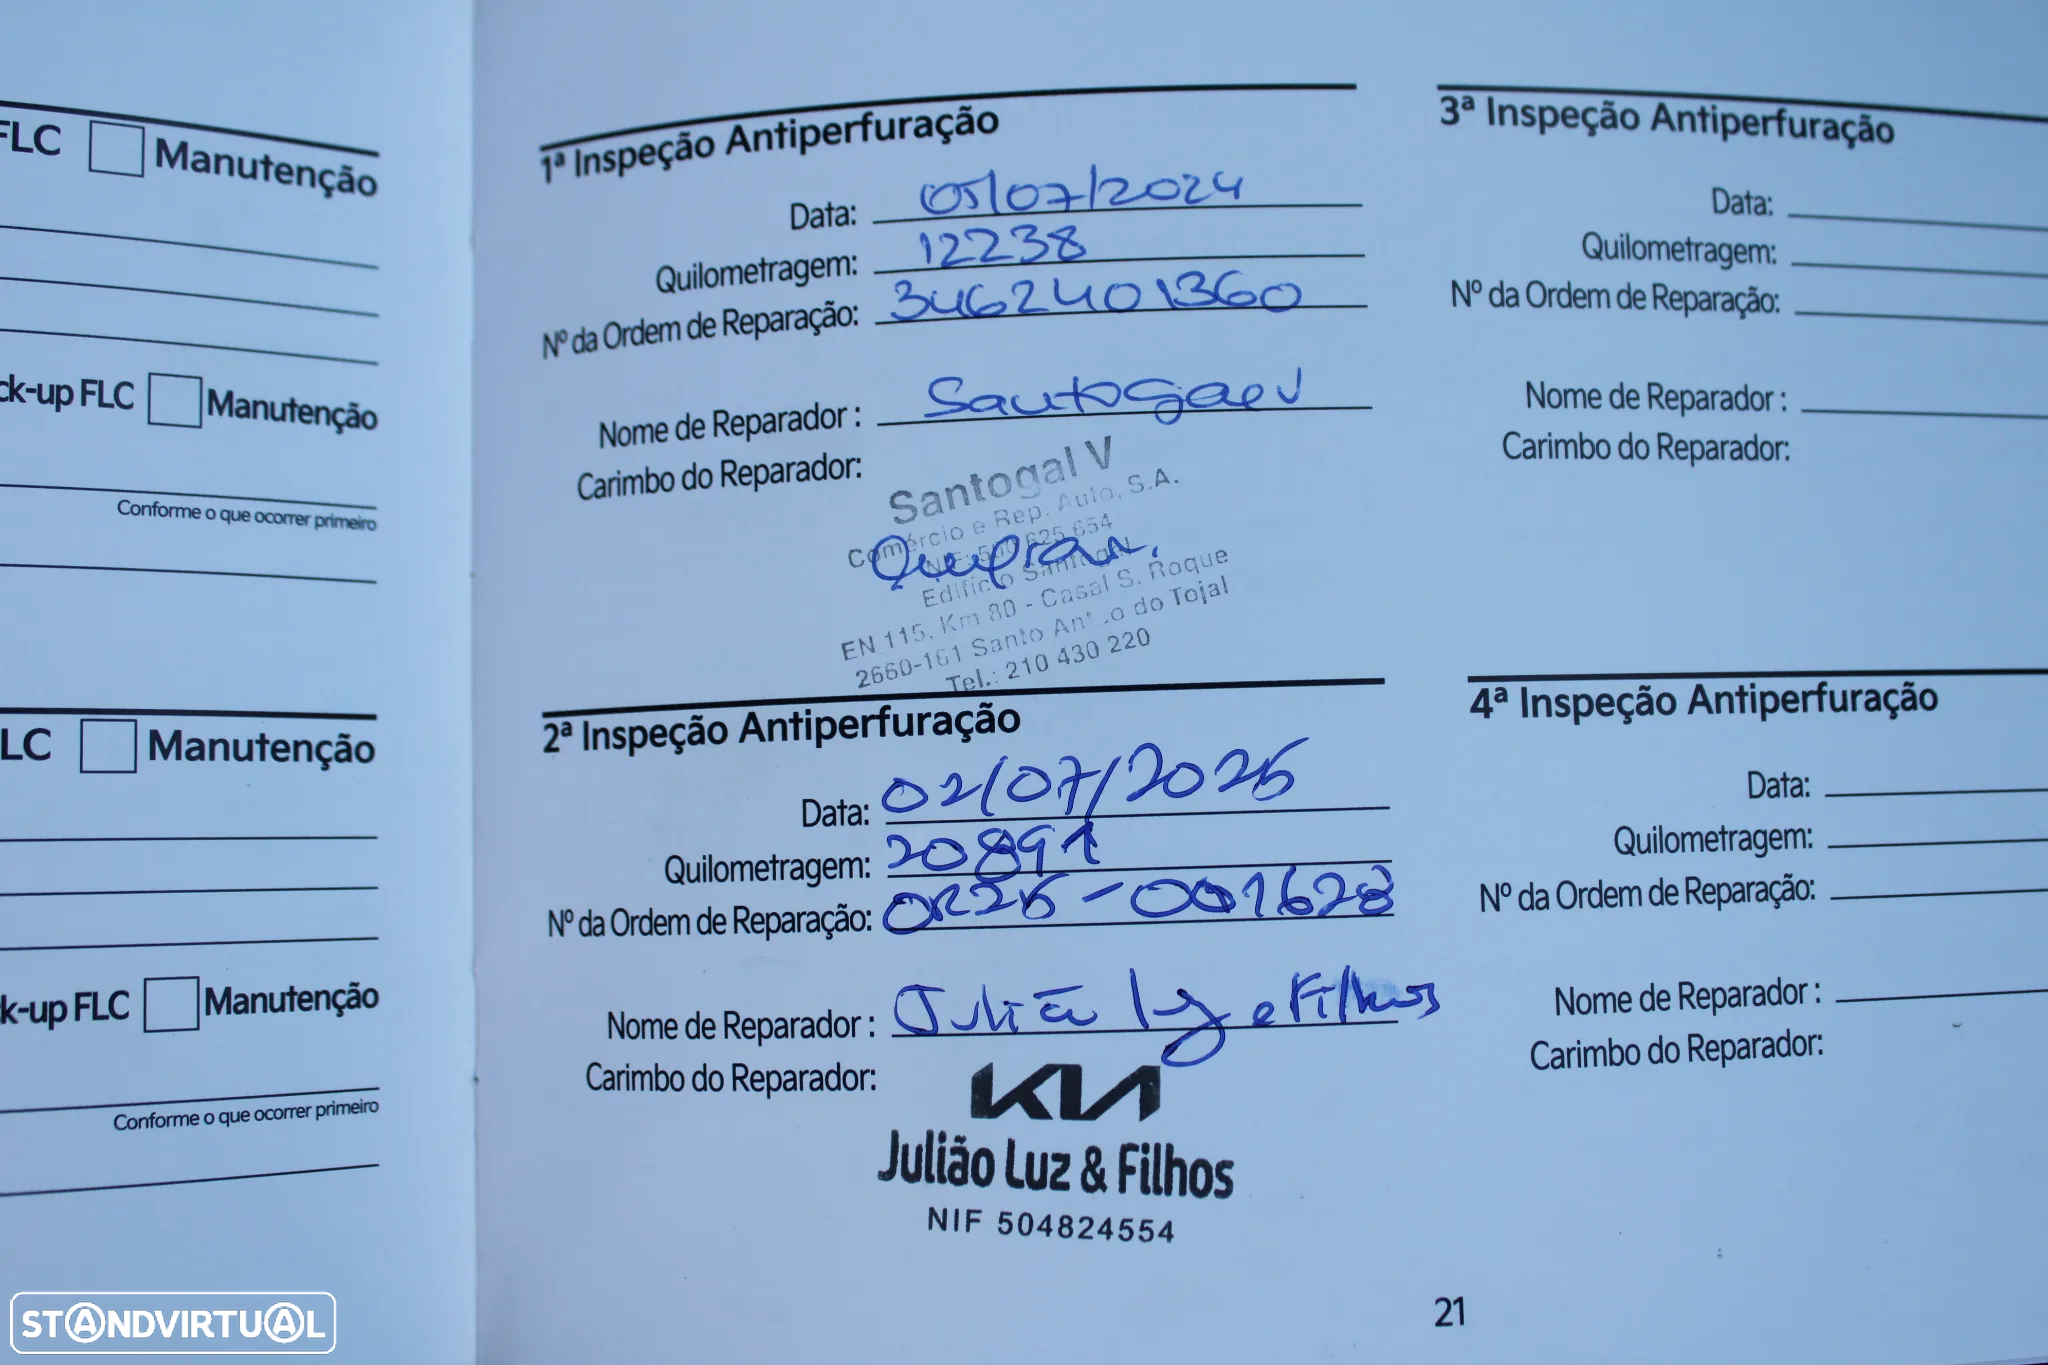 FLC Manutenção
ck-up FLC Manutenção
Conforme o que ocorrer primeiro
LC Manutenção
k-up FLC Manutenção
Conforme o que ocorrer primeiro
1ª Inspeção Antiperfuração
Data: 05/07/2024
Quilometragem: 12238
Nº da Ordem de Reparação: 3462401360
Nome de Reparador : Santogal V
Carimbo do Reparador:
Santogal V
Comércio e Rep. Auto, S.A.
NIF: 500 625 654
Edifício Santogal
EN 115, Km 80 - Casal S. Roque
2660-161 Santo Ant o do Tojal
Tel.: 210 430 220
2ª Inspeção Antiperfuração
Data: 02/07/2026
Quilometragem: 20891
Nº da Ordem de Reparação: OR26-001628
Nome de Reparador : Julião Luz e Filhos
Carimbo do Reparador:
KIA
Julião Luz & Filhos
NIF 504824554
3ª Inspeção Antiperfuração
Data:
Quilometragem:
Nº da Ordem de Reparação:
Nome de Reparador :
Carimbo do Reparador:
4ª Inspeção Antiperfuração
Data:
Quilometragem:
Nº da Ordem de Reparação:
Nome de Reparador :
Carimbo do Reparador:
21
STANDVIRTUAL